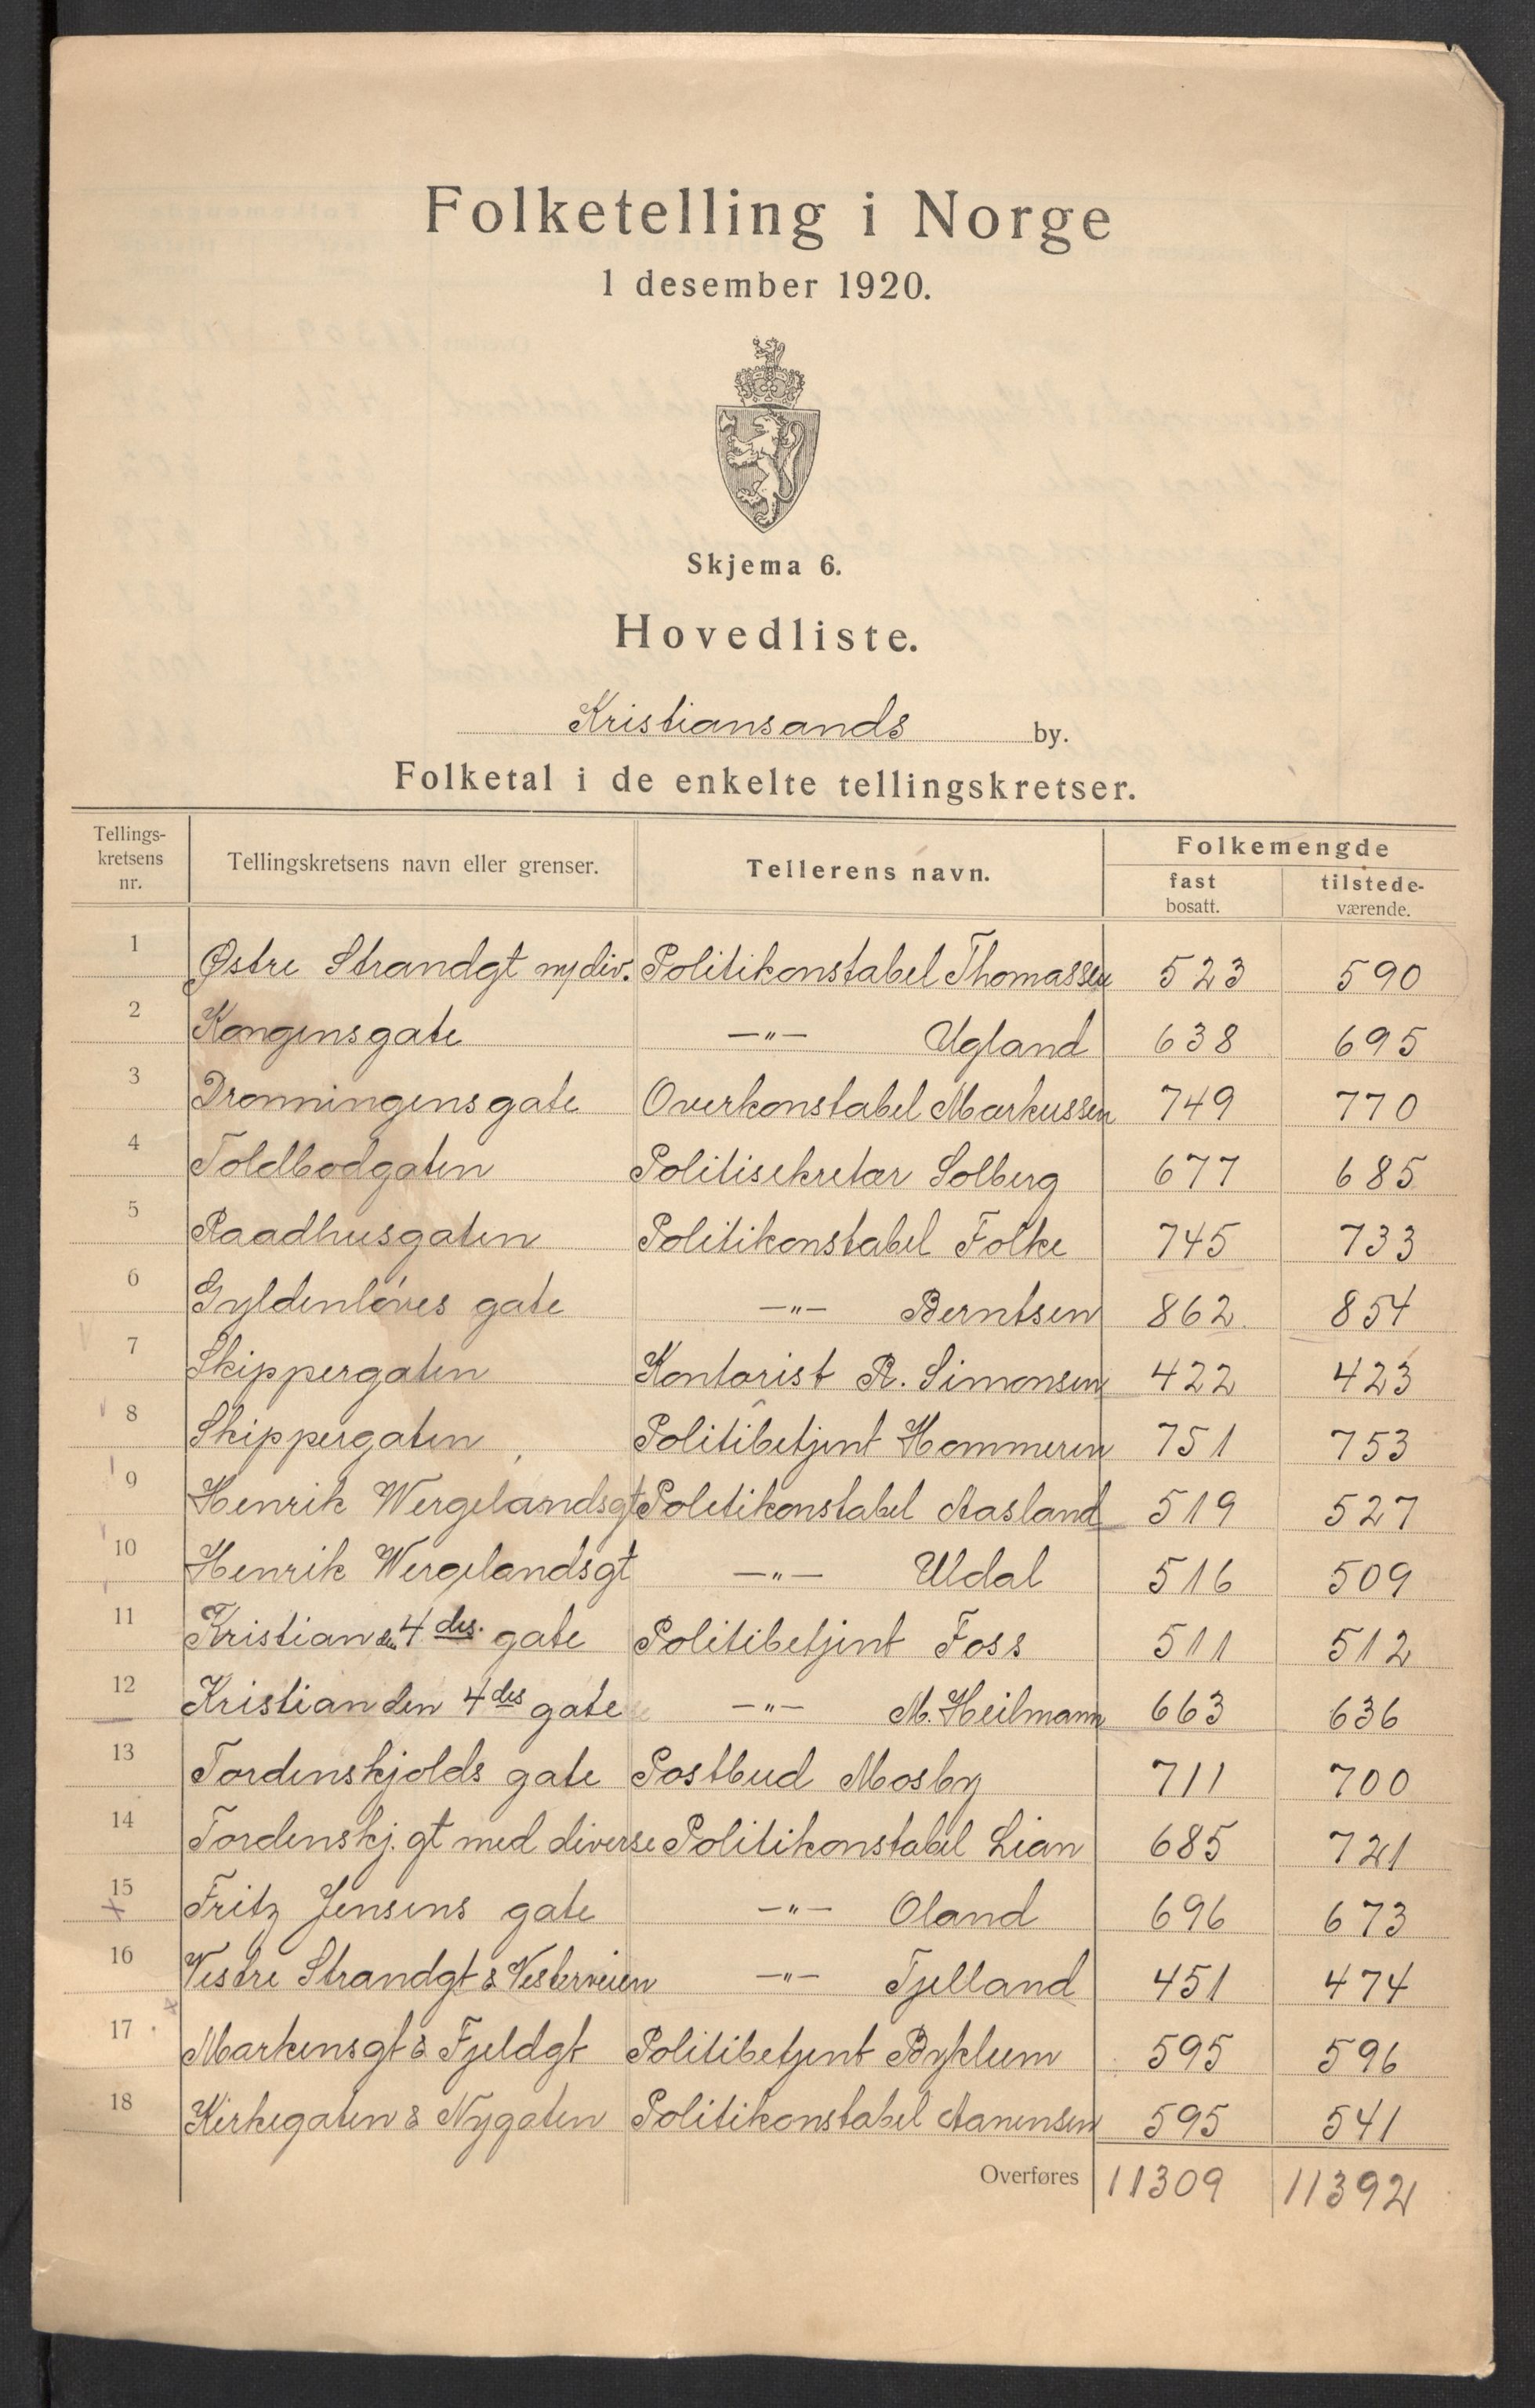 Folketelling i Norge
1 desember 1920.
Skjema 6.
Hovedliste.
Kristiansands by.
Folketal i de enkelte tellingskretser.
Tellings-kretsens nr. Tellingskretsens navn eller grenser. Tellerens navn. Folkemengde fast bosatt. tilstede-værende.
1 Østre Strandgt m/div. Politikonstabel Thomassen 523 590
2 Kongensgate —"— Ugland 638 695
3 Dronningensgate Overkonstabel Markussen 749 770
4 Toldbodgaten Politisekretær Solberg 677 685
5 Raadhusgaten Politikonstabel Folke 745 733
6 Gyldenløves gate —"— Berntsen 862 854
7 Skippergaten Kontorist R. Simonsen 422 423
8 Skippergaten Politibetjent Hommeren 751 753
9 Henrik Wergelandsgt Politikonstabel Aasland 519 527
10 Henrik Wergelandsgt —"— Udal 516 509
11 Kristian den 4des. gate Politibetjent Foss 511 512
12 Kristian den 4des gate —"— M. Heilmann 663 636
13 Tordenskjolds gate Postbud Mosby 711 700
14 Tordenskj. gt med diverse Politikonstabel Lian 685 721
15 Fritz Jensens gate —"— Oland 696 673
16 Vestre Strandgt & Vesterveien —"— Tjelland 451 474
17 Markensgt & Fjeldgt Politibetjent Byklum 595 596
18 Kirkegaten & Nygaten Politikonstabel Aanensen 595 541
Overføres 11309 11392